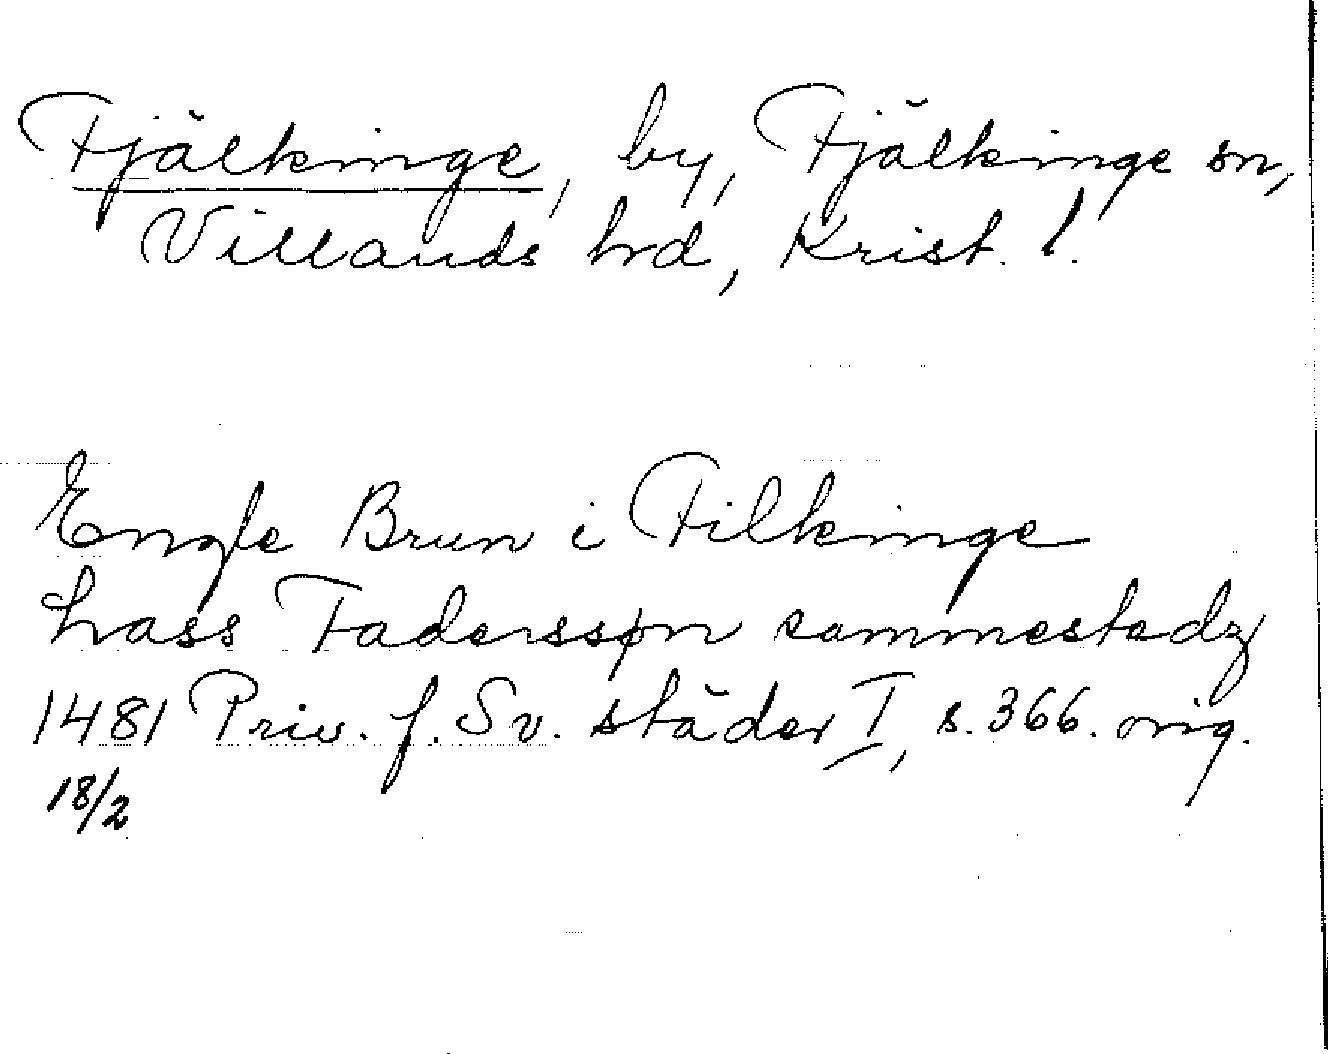 Fjälkinge, by, Fjälkinge sn,
Villands hd, Krist. l.
Engle Brun i Filkinge
Lass Faderssøn sammestedz
1481 Priv. f. Sv. städer I, s. 366. orig.
18/2